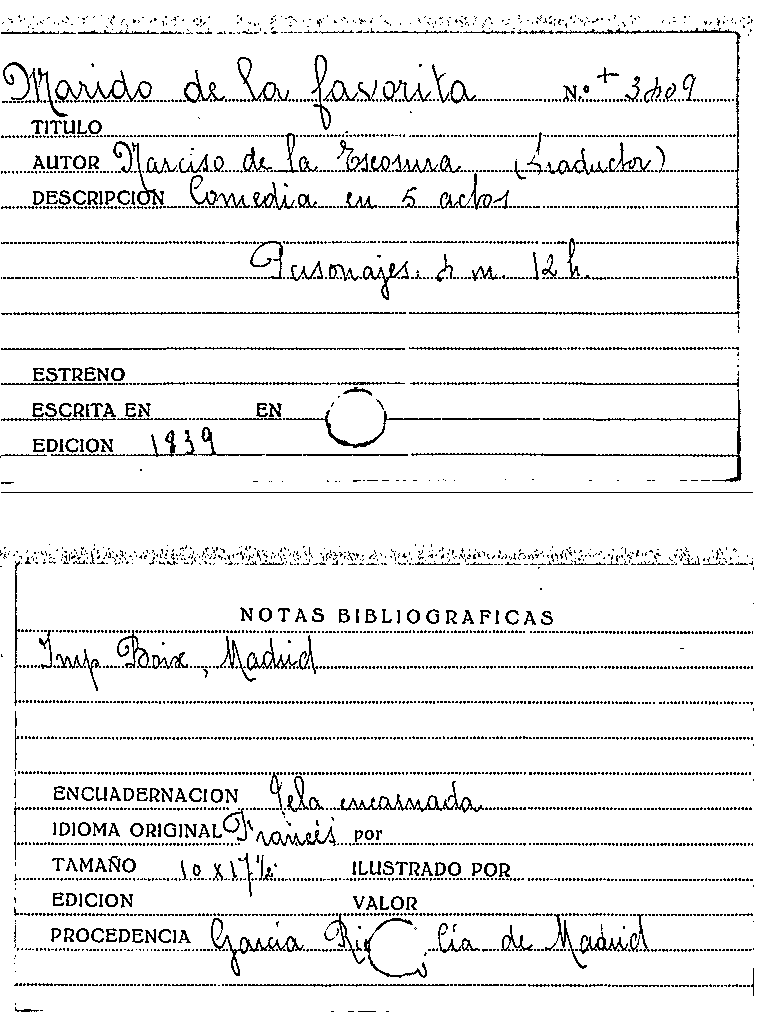 Marido de la favorita N.º +
TITULO
AUTOR Narciso de la Escosura (traductor)
DESCRIPCION Comedia en 5 actos
Personajes. m. 12 h.
ESTRENO
ESCRITA EN EN
EDICION 1839
NOTAS BIBLIOGRAFICAS
Imp Boix, Madrid
ENCUADERNACION Tela encarnada
IDIOMA ORIGINAL Francés por
TAMAÑO 10 x 17 ½ ILUSTRADO POR
EDICION VALOR
PROCEDENCIA García cía de Madrid